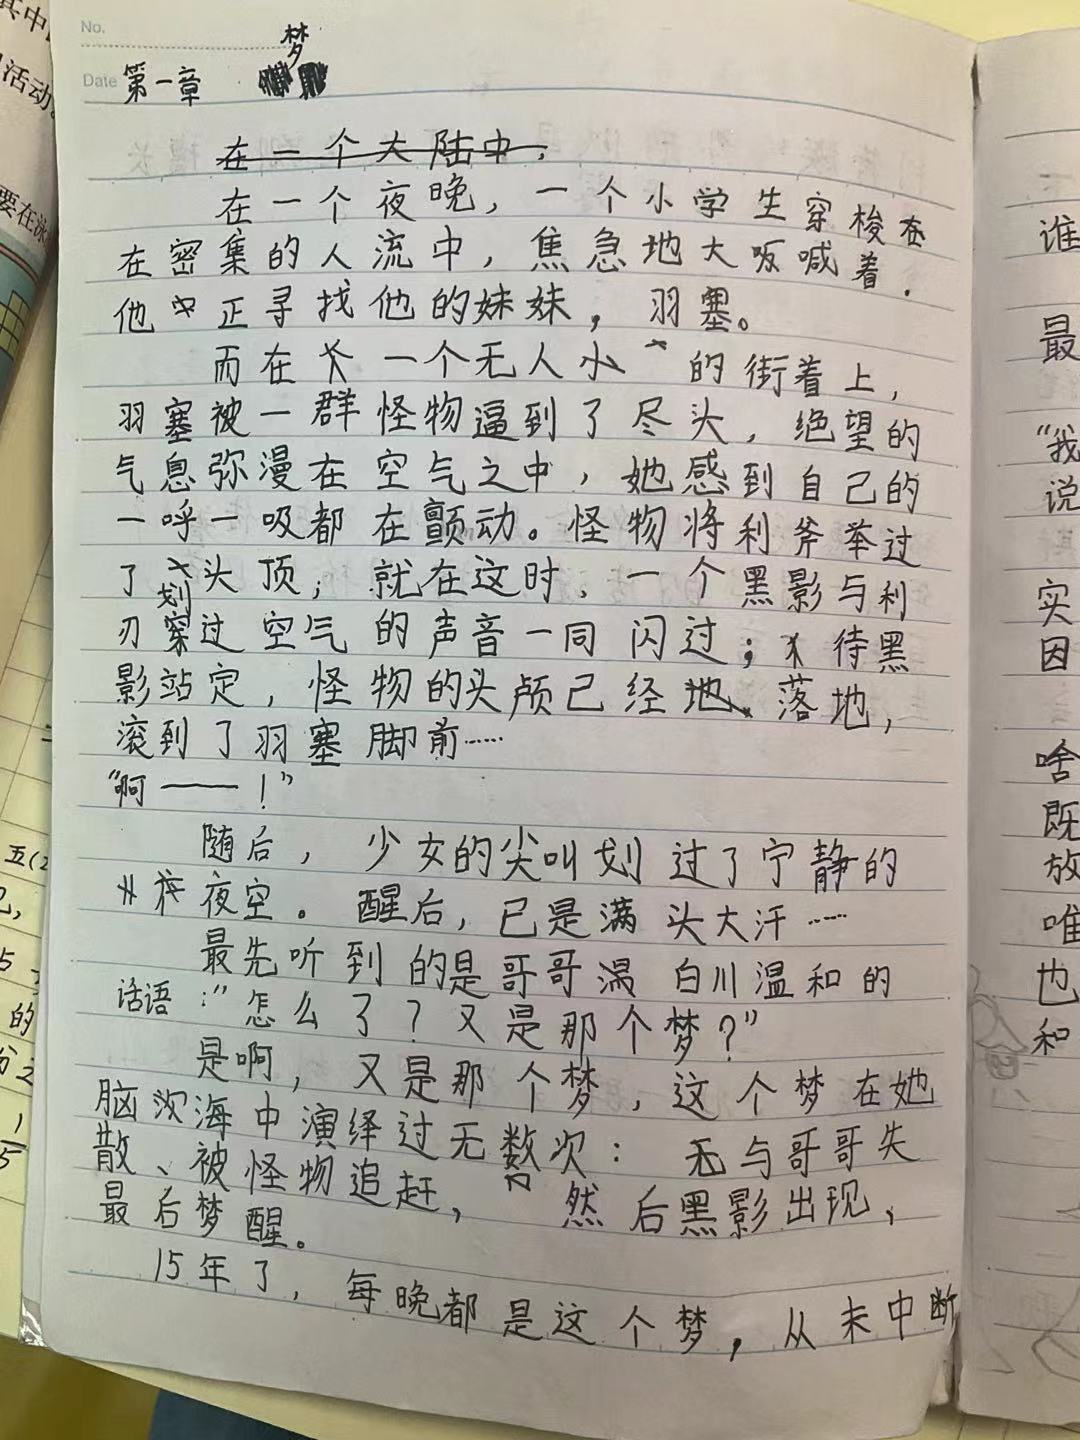 No.
梦
Date 第一章
在一个大陆中，
在一个夜晚，一个小学生穿梭
在密集的人流中，焦急地大呼喊着．
他正寻找他的妹妹，羽塞。
而在一个无人小的街着上，
羽塞被一群怪物逼到了尽头，绝望的
气息弥漫在空气之中，她感到自己的
一呼一吸都在颤动。怪物将利斧举过
了头顶，就在这时，一个黑影与利
刃划过空气的声音一同闪过；待黑
影站定，怪物的头颅已经落地，
滚到了羽塞脚前……
“啊——！”
随后，少女的尖叫划过了宁静的
夜空。醒后，已是满头大汗……
最先听到的是哥哥涡白川温和的
话语：“怎么了？又是那个梦？”
是啊，又是那个梦，这个梦在她
脑海中演绎过无数次：与哥哥失
散、被怪物追赶，然后黑影出现、
最后梦醒。
15年了，每晚都是这个梦，从未中断
其中
活动。
要在泳
五(2
的
1
5
谁
最
“我
说
实
因
啥
既
放
唯
也
和